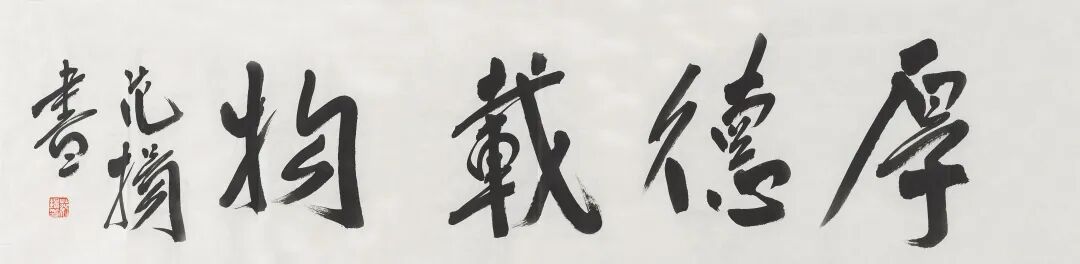 厚德載物
范
書